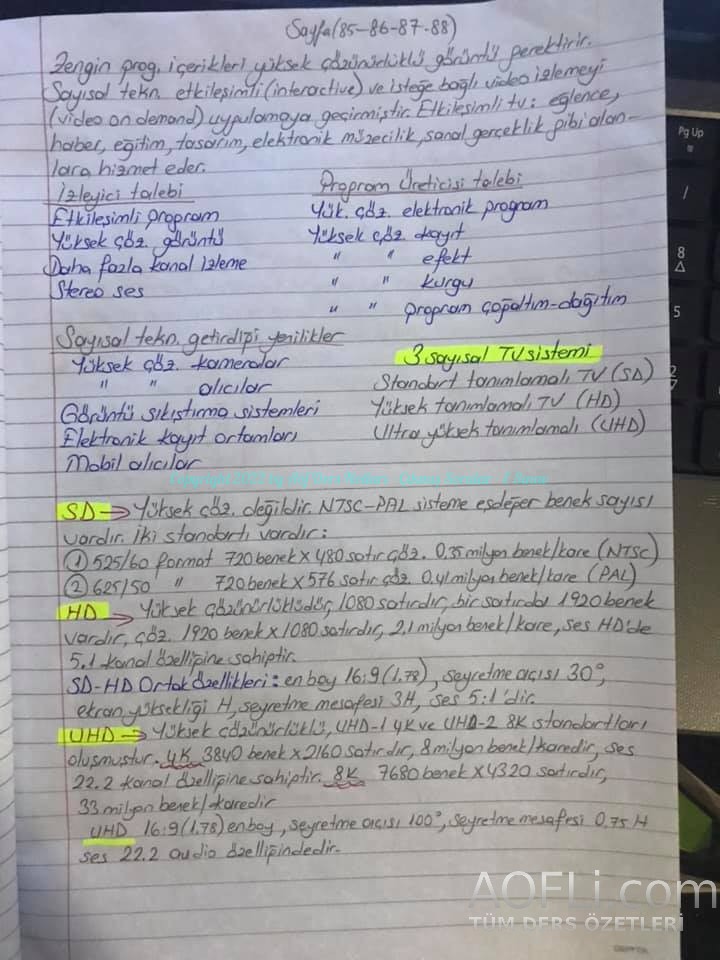 Sayfa(85-86-87-88)
Zengin prog. içerikleri yüksek çözünürlüklü görüntü gerektirir.
Sayısal tekn. etkileşimli (interactive) ve isteğe bağlı video izlemeyi
(video on demand) uygulamaya geçirmiştir. Etkileşimli tv: eğlence,
haber, eğitim, tasarım, elektronik müzecilik, sanal gerçeklik gibi alan-
lara hizmet eder.
İzleyici talebi
Etkileşimli program
Yüksek çöz. görüntü
Daha fazla kanal izleme
Stereo ses
Program Üreticisi talebi
Yük. çöz. elektronik program
Yüksek çöz. kayıt
" " efekt
" " kurgu
" " program çoğaltım-dağıtım
Sayısal tekn. getirdiği yenilikler
Yüksek çöz. kameralar
" " alıcılar
Görüntü sıkıştırma sistemleri
Elektronik kayıt ortamları
Mobil alıcılar
3 sayısal TV sistemi
Standart tanımlamalı TV (SD)
Yüksek tanımlamalı TV (HD)
Ultra yüksek tanımlamalı (UHD)
SD → Yüksek çöz. değildir. NTSC-PAL sisteme eşdeğer benek sayısı
vardır. İki standartı vardır:
① 525/60 format 720 benek X 480 satır çöz. 0.35 milyon benek/kare (NTSC)
② 625/50 " 720 benek X 576 satır çöz. 0.41 milyon benek/kare (PAL)
HD → Yüksek çözünürlüklüdür, 1080 satırdır, bir satırda 1920 benek
vardır, çöz. 1920 benek x 1080 satırdır, 2.1 milyon benek/kare, ses HD'de
5.1 kanal özelliğine sahiptir.
SD-HD Ortak özellikleri: en boy 16:9 (1.78), seyretme açısı 30°,
ekran yüksekliği H, seyretme mesafesi 3H, ses 5:1'dir.
UHD → Yüksek çözünürlüklü, UHD-1 4K ve UHD-2 8K standartları
oluşmuştur. 4K 3840 benek x 2160 satırdır, 8 milyon benek/karedir, ses
22.2 kanal özelliğine sahiptir. 8K 7680 benek X 4320 satırdır,
33 milyon benek/karedir
UHD 16:9 (1.78) en boy, seyretme açısı 100°, seyretme mesafesi 0.75 H
ses 22.2 audio özelliğindedir.
Pg Up
/
8
5
2
AOFLi.com
TÜM DERS ÖZETLERİ